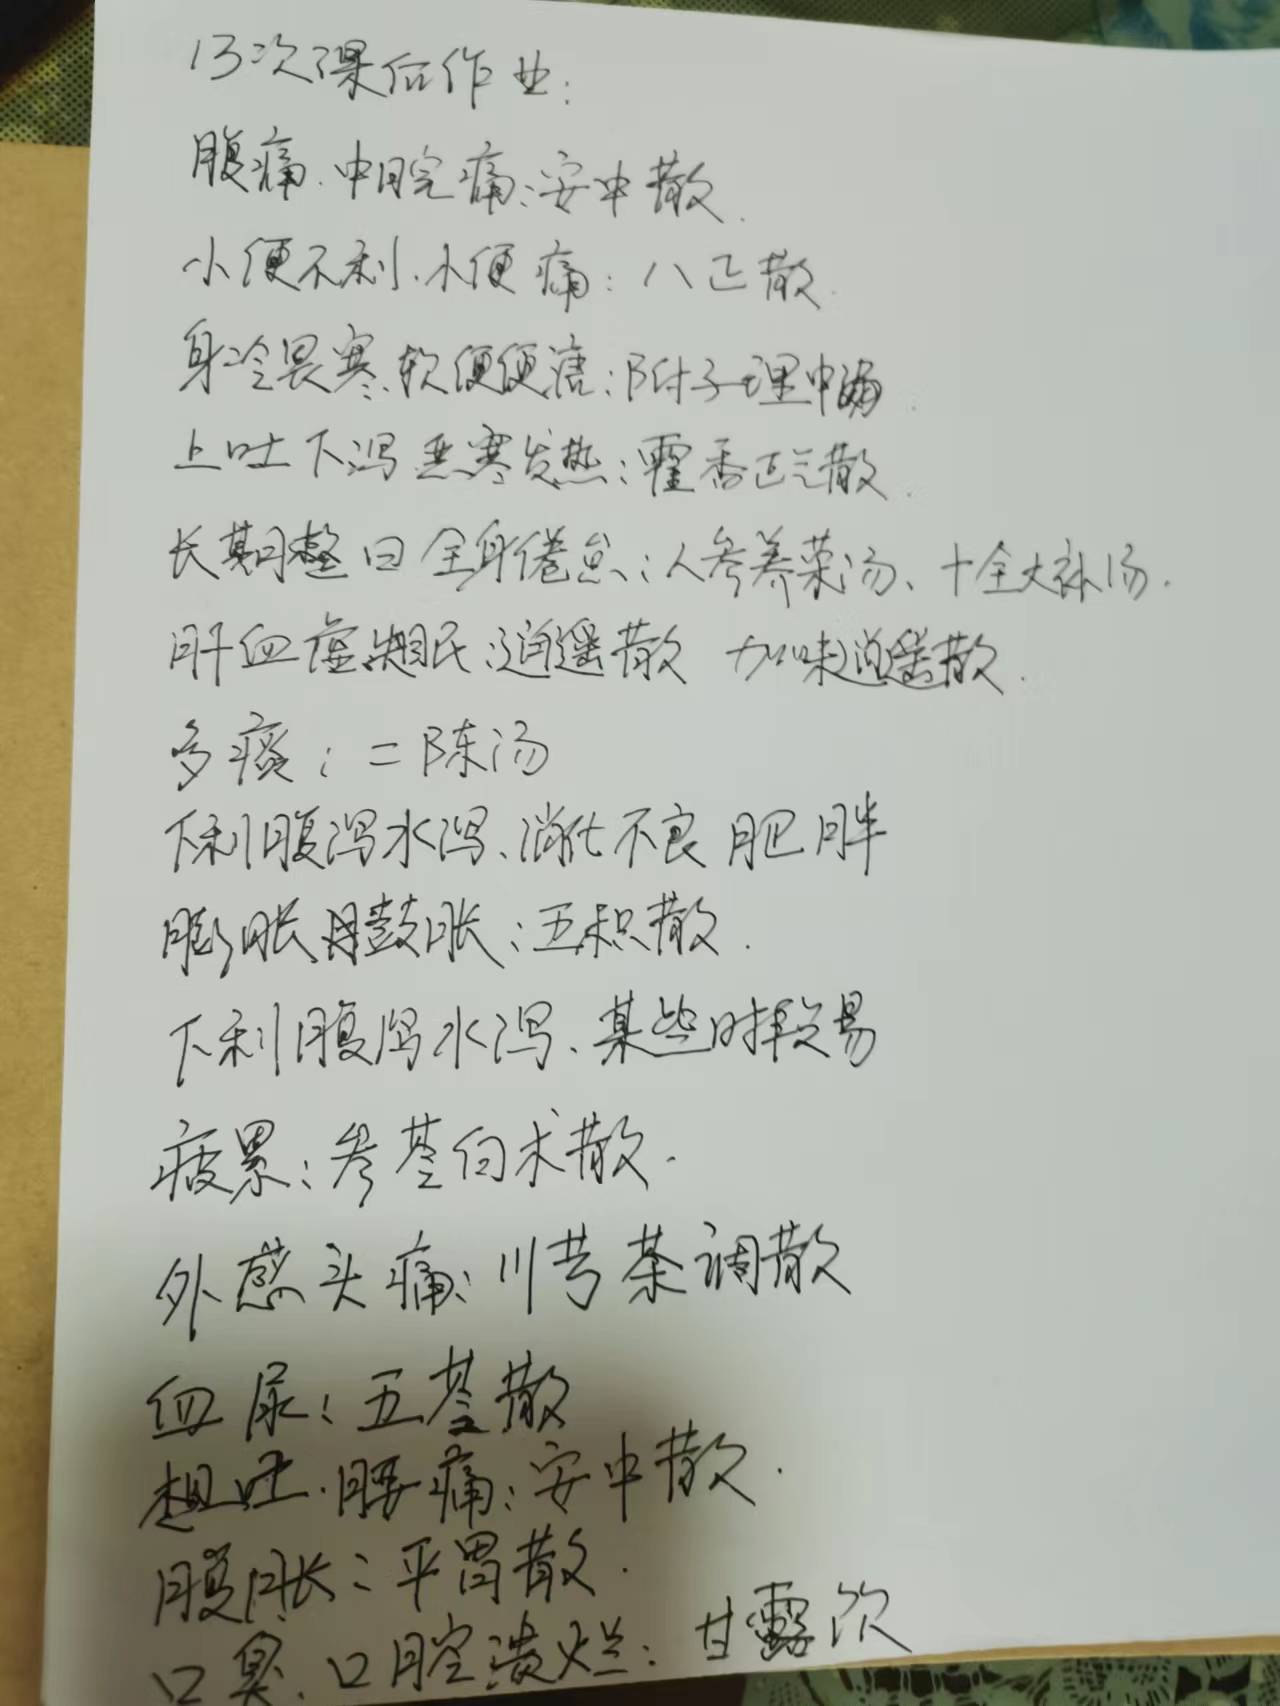 13次课后作业:
腹痛.中脘痛:安中散.
小便不利.小便痛:八正散.
身冷畏寒.软便便溏:附子理中汤.
上吐下泻恶寒发热:霍香正气散.
长期整日全身倦怠:人参养荣汤、十全大补汤.
肝血虚失眠:逍遥散 加味逍遥散.
多痰:二陈汤
下利腹泻水泻、消化不良肥胖
膨胀臌胀:五积散.
下利腹泻水泻、某些时段易
疲累:参苓白术散.
外感头痛:川芎茶调散
血尿:五苓散
想吐.腰痛:安中散.
腹胀:平胃散.
口臭、口腔溃烂:甘露饮